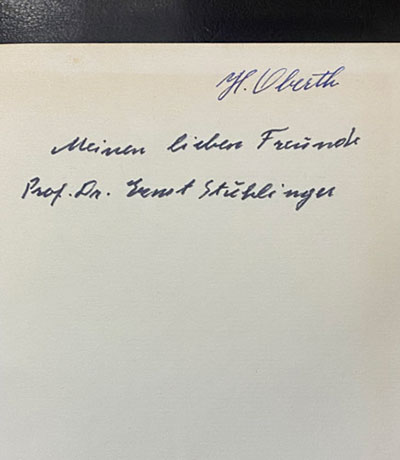 H. Oberth
Meinem lieben Freunde
Prof. Dr. Ernst Stuhlinger